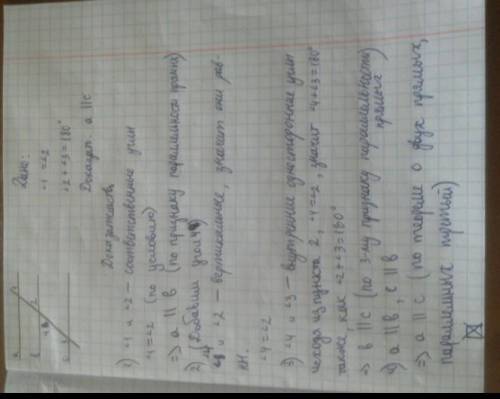 a
b
c
Дано:
∠1 = ∠2
∠2 + ∠3 = 180°
Доказат: a || c
Доказательств.
1) ∠1 и ∠2 – соответственные углы
∠1 = ∠2 (по условию)
=> a || b (по признаку параллельности прямых)
2) (Добавим угол 4)
∠4 и ∠2 – вертикальные, значит они рав-
ны.
∠4 = ∠2
3) ∠4 и ∠3 – внутренние односторонние углы
исходя из пункта 2, ∠4 = ∠2, значит ∠4 + ∠3 = 180°
также, как ∠2 + ∠3 = 180°
=> b || c (по 3-му признаку параллельности
прямых)
4) a || b, c || b
=> a || c (по теореме о двух прямых,
параллельных третьей)